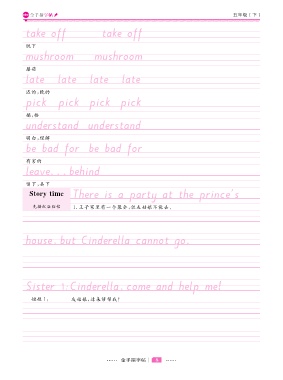 五年级(下)
take off take off
脱下
mushroom mushroom
蘑菇
late late late late
迟的,晚的
pick pick pick pick
摘,拾
understand understand
明白,理解
be bad for be bad for
有害的
leave...behind
留下,丢下
Story time There is a party at the prince's
1.王子家里有一个聚会,但灰姑娘不能去。
house, but Cinderella cannot go.
Sister 1:Cinderella, come and help me!
姐姐1: 灰姑娘,过来帮帮我!